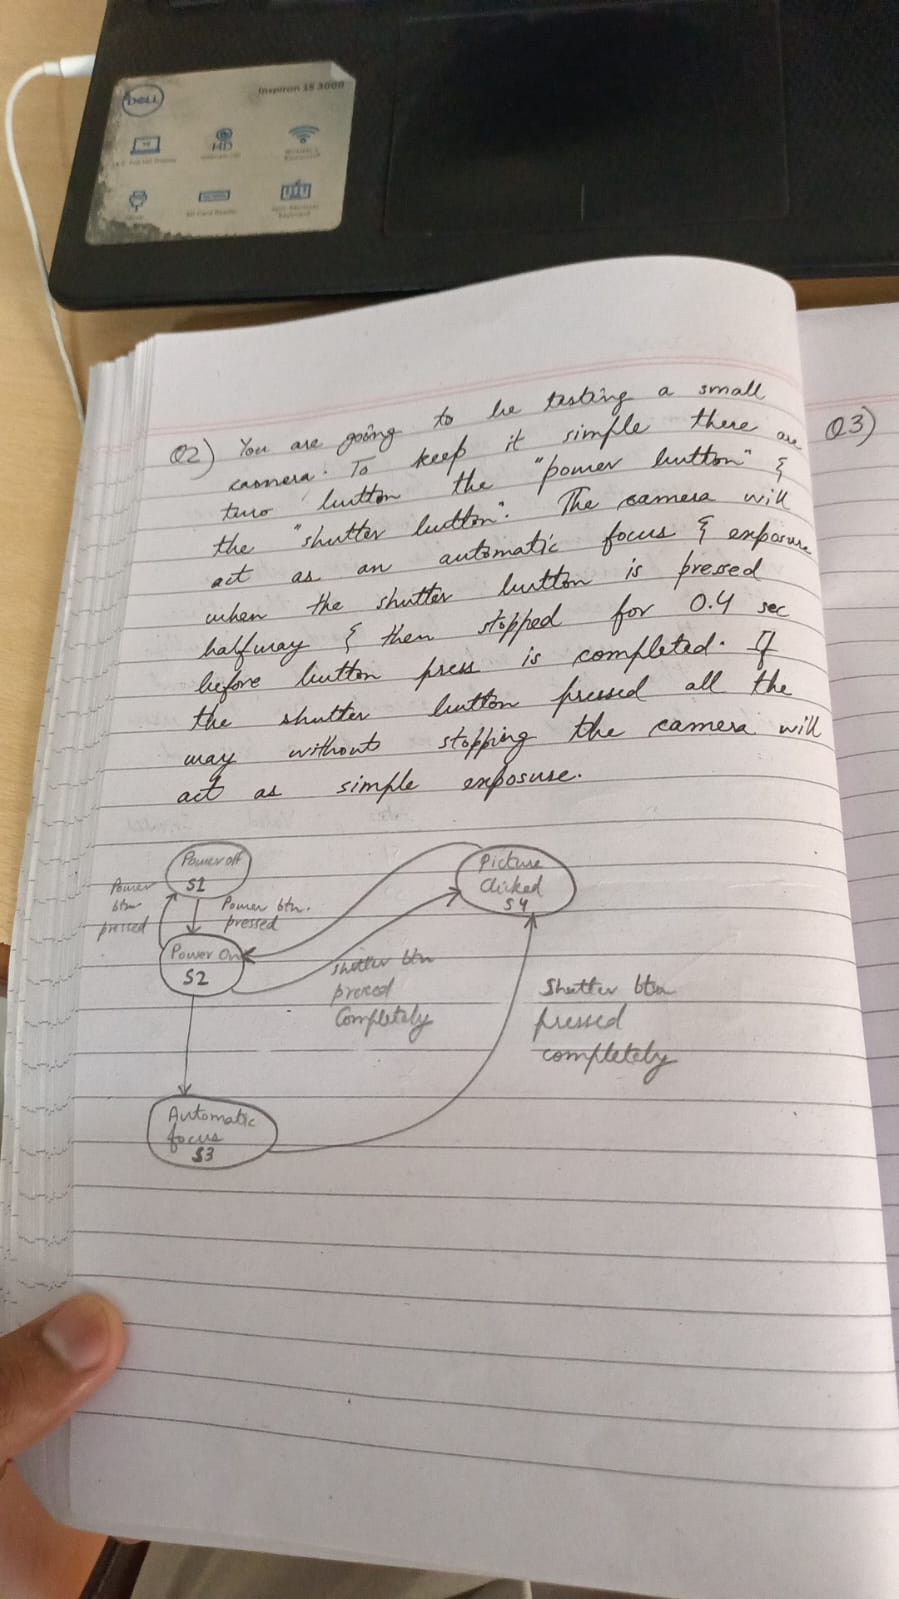 DELL
Inspiron 15 3000
HD
SD Card Reader
Q2) You are going to be testing a small
camera. To keep it simple there are
two button the "power button" &
the "shutter button". The camera will
act as an automatic focus & exposure
when the shutter button is pressed
halfway & then stopped for 0.4 sec
before button press is completed. If
the shutter button pressed all the
way without stopping the camera will
act as simple exposure.
Q3)
Power off
S1
Power
btn
pressed
Power btn.
pressed
Power On
S2
Picture
Clicked
S4
Shutter btn
pressed
Completely
Shutter btn
pressed
completely
Automatic
focus
S3